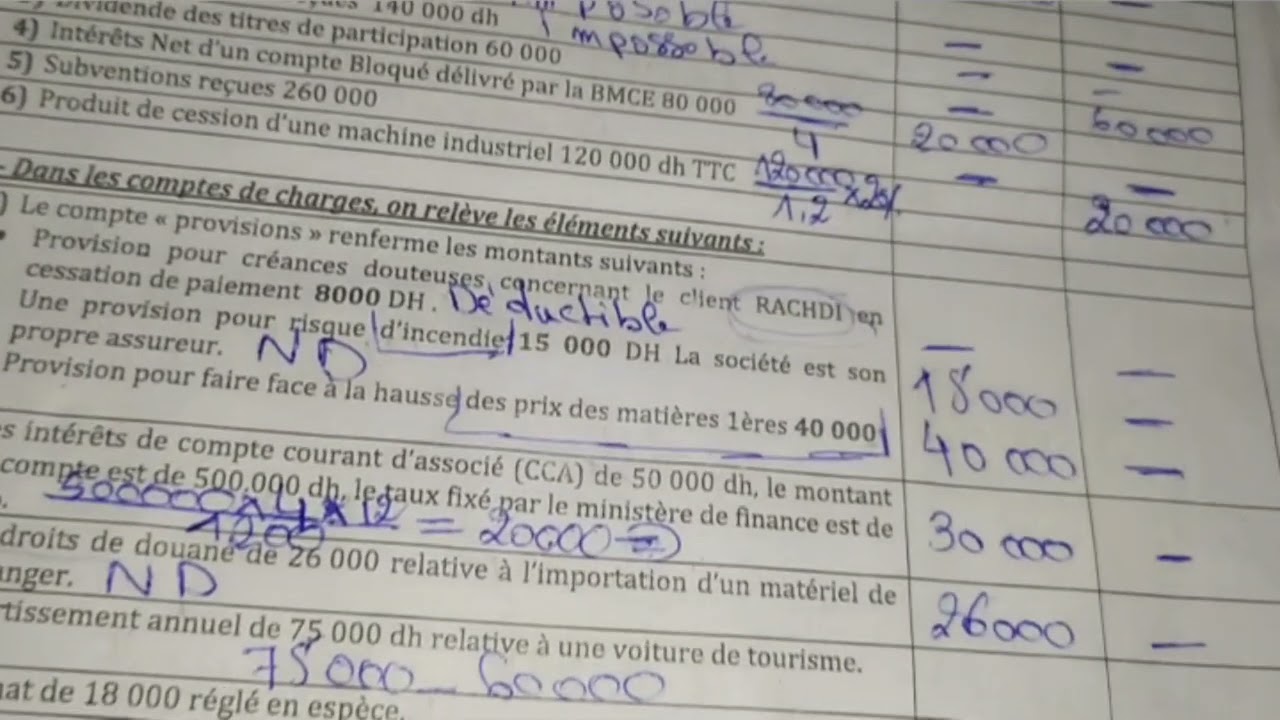 140 000 dh
Dividende des titres de participation 60 000
possoble
impossoble
4) Intérêts Net d'un compte Bloqué délivré par la BMCE 80 000
5) Subventions reçues 260 000
6) Produit de cession d'une machine industriel 120 000 dh TTC
— —
— —
80000/4 — 60000
20000
120000/1,2 x 20% — —
20000
- Dans les comptes de charges, on relève les éléments suivants :
) Le compte « provisions » renferme les montants suivants :
• Provision pour créances douteuses, concernant le client RACHDI en
cessation de paiement 8000 DH. Déductible — —
Une provision pour risque d'incendie 15 000 DH La société est son
propre assureur. ND 15000 —
Provision pour faire face à la hausse des prix des matières 1ères 40 000 40 000 —
s intérêts de compte courant d'associé (CCA) de 50 000 dh, le montant
compte est de 500.000 dh, le taux fixé par le ministère de finance est de
500000 x 4 x 12 / 1200 = 20000 => 30 000 —
droits de douane de 26 000 relative à l'importation d'un matériel de
anger. ND 26000 —
rtissement annuel de 75 000 dh relative à une voiture de tourisme.
75000 - 60000
hat de 18 000 réglé en espèce.